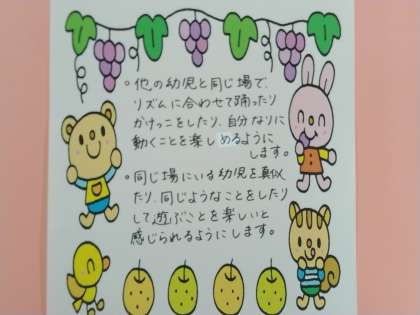 。他の幼児と同じ場で、
リズムに合わせて踊ったり
かけっこをしたり、自分なりに
動くことを楽しめるように
します。
。同じ場にいる幼児を真似
たり、同じようなことをしたり
して遊ぶことを楽しいと
感じられるようにします。